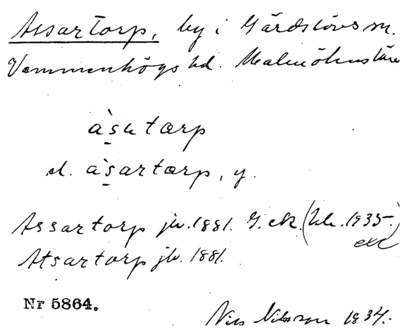 Assartorp, by i Gärdslövs sn.
Vemmenhögs hd. Malmöhus län
àsatarp
el. àsartarp, y.
Assartorp jb. 1881. G. ek. (bl. 1935.)
Atsartorp jb. 1881.
Nr 5864.
Nils Nilsson 1934.